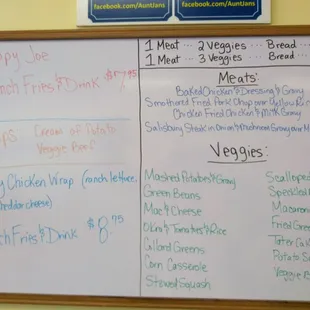 facebook.com/AuntJans
facebook.com/AuntJans
ppy Joe
nch Fries & Drink $7.95
ps Cream of Potato
Veggie Beef
y Chicken Wrap (ranch lettuce,
heddar cheese)
nch Fries & Drink $8.75
1 Meat ... 2 Veggies ... Bread ...
1 Meat ... 3 Veggies ... Bread ...
Meats:
Baked Chicken & Dressing & Gravy
Smothered Fried Pork Chop over Yellow Ric
Chicken Fried Chicken & Milk Gravy
Salisbury Steak in Onion & Mushroom Gravy over M
Veggies:
Mashed Potatoes & Gravy
Green Beans
Mac & Cheese
Okra & Tomatoes & Rice
Collard Greens
Corn Casserole
Stewed Squash
Scalloped
Speckled
Macaroni
Fried Gree
Tater Cak
Potato Sa
Veggie B